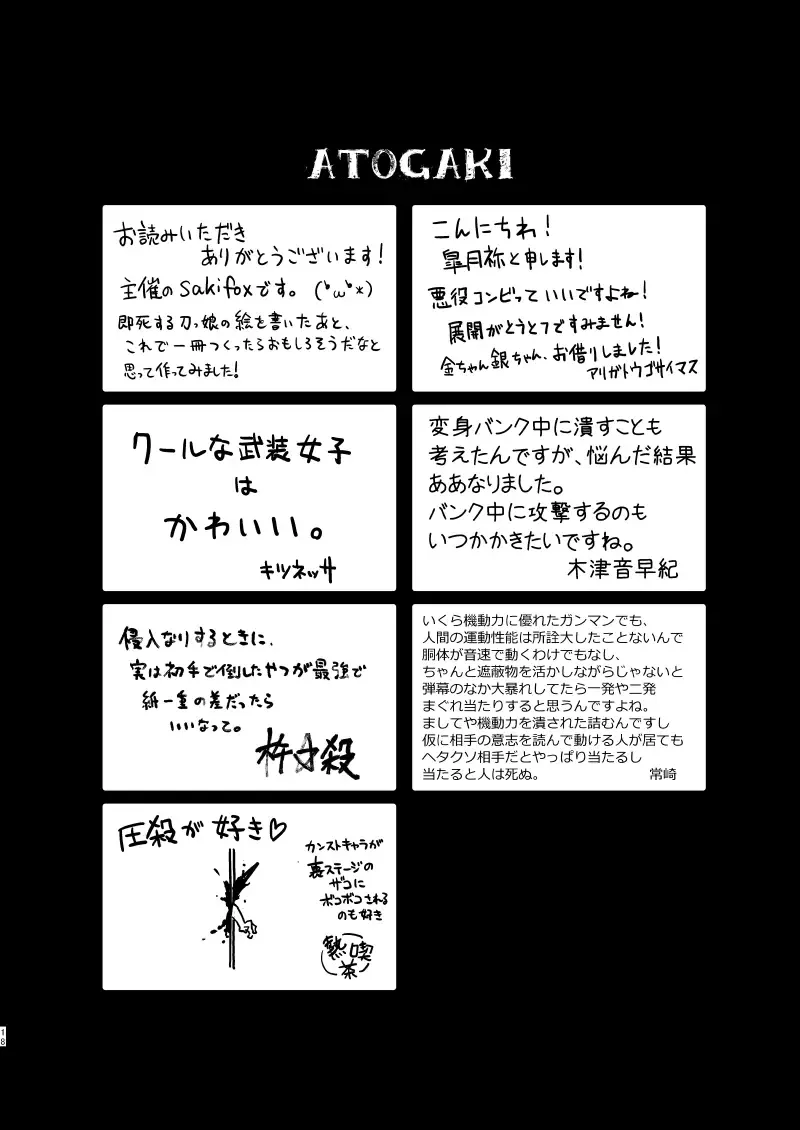 ATOGAKI
お読みいただき
ありがとうございます!
主催のsakifoxです。(・ω・*)
即死する刀っ娘の絵を書いたあと、
これで一冊つくったらおもしろそうだなと
思って作ってみました!
こんにちわ!
皐月祢と申します!
悪役コンビっていいですよね!
展開がとうとつですみません!
金ちゃん銀ちゃん、お借りしました!
アリガトウゴザイマス
クールな武装女子
は
かわいい。
キツネッサ
変身バンク中に潰すことも
考えたんですが、悩んだ結果
ああなりました。
バンク中に攻撃するのも
いつかかきたいですね。
木津音早紀
侵入なりするときに、
実は初手で倒したやつが最強で
紙一重の差だったら
いいなって。
いくら機動力に優れたガンマンでも、
人間の運動性能は所詮大したことないんで
胴体が音速で動くわけでもなし、
ちゃんと遮蔽物を活かしながらじゃないと
弾幕のなか大暴れしてたら一発や二発
まぐれ当たりすると思うんですよね。
ましてや機動力を潰された詰むんですし
仮に相手の意志を読んで動ける人が居ても
ヘタクソ相手だとやっぱり当たるし
当たると人は死ぬ。 常崎
圧殺が好き♡
カンストキャラが
裏ステージの
ザコに
ボコボコされる
のも好き
熱喫
茶
18